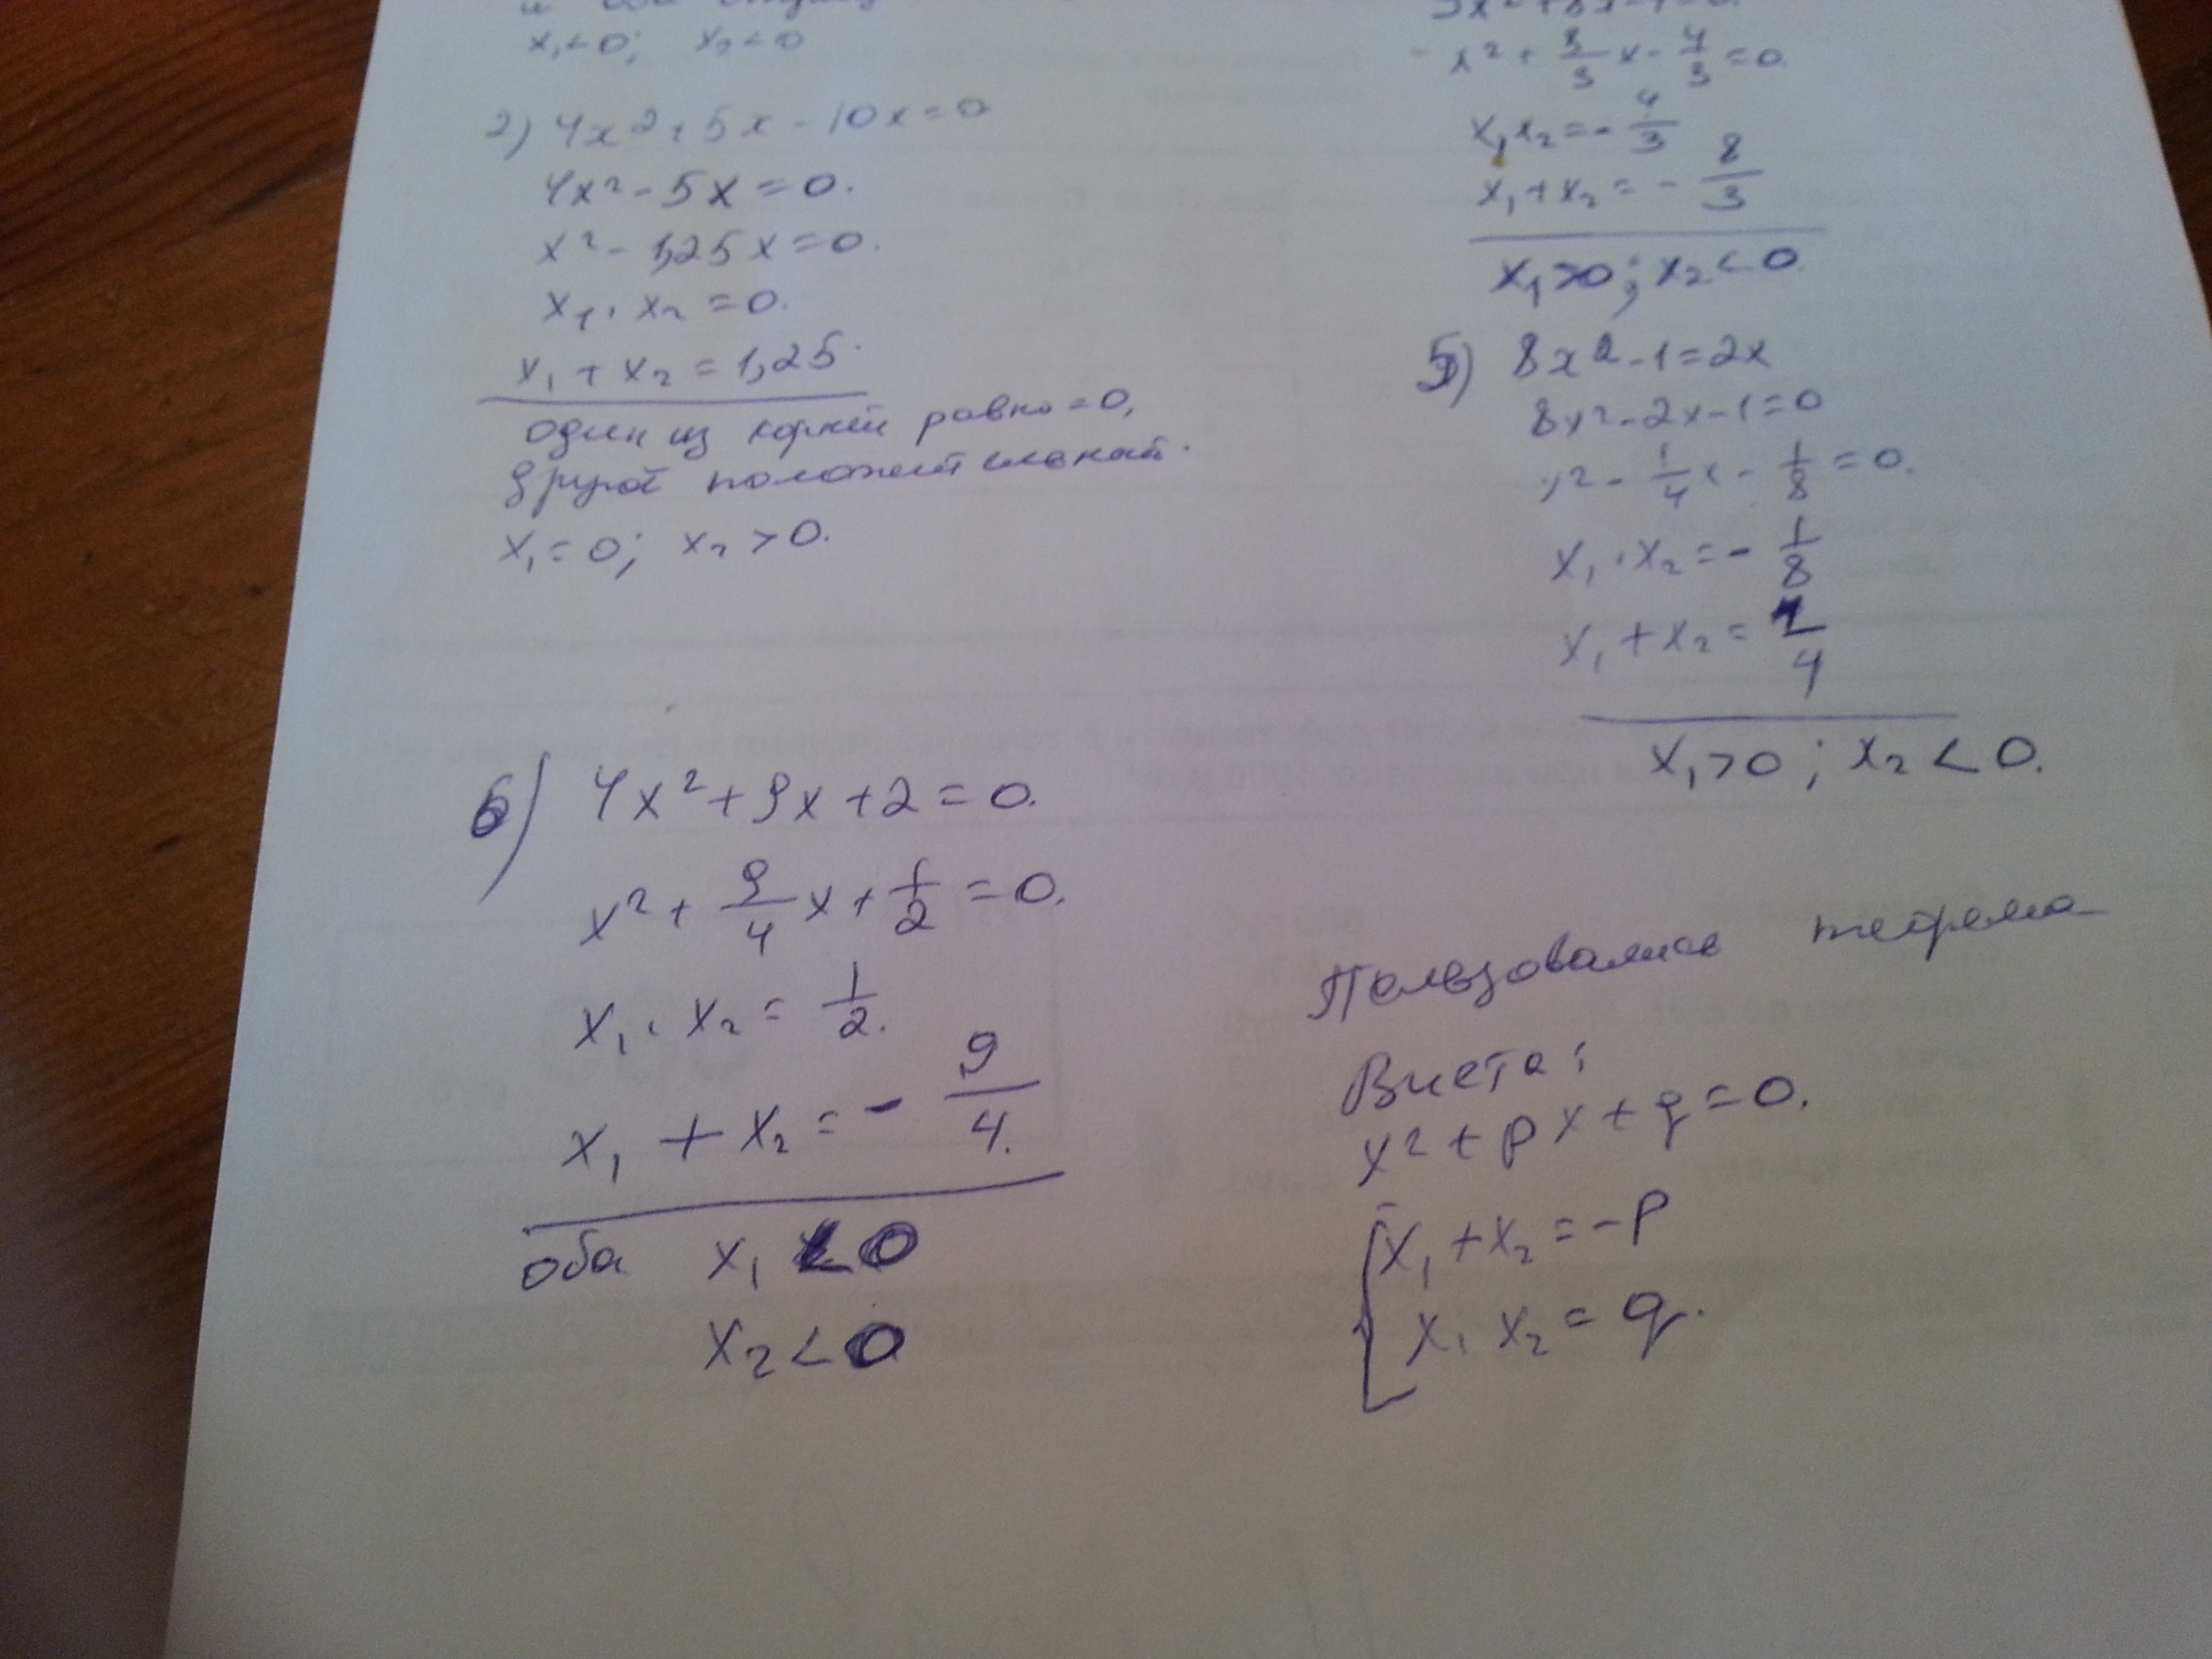 x₁<0; x₂<0
2) 4x²+5x-10x=0
4x²-5x=0.
x²-1,25x=0.
x₁·x₂=0.
x₁+x₂=1,25.
один из корней равно=0,
другой
x₁=0; x₂>0.
x²+8/3x-4/3=0
x₁x₂=-4/3
x₁+x₂=-8/3
x₁>0; x₂<0
5) 8x²-1=2x
8x²-2x-1=0
x²-1/4x-1/8=0.
x₁·x₂=-1/8
x₁+x₂=1/4
x₁>0; x₂<0.
6) 4x²+9x+2=0.
x²+9/4x+1/2=0.
x₁·x₂=1/2.
x₁+x₂=-9/4.
оба x₁<0
x₂<0
Пользовались теорема
Виета:
x²+px+q=0.
x₁+x₂=-p
x₁x₂=q.